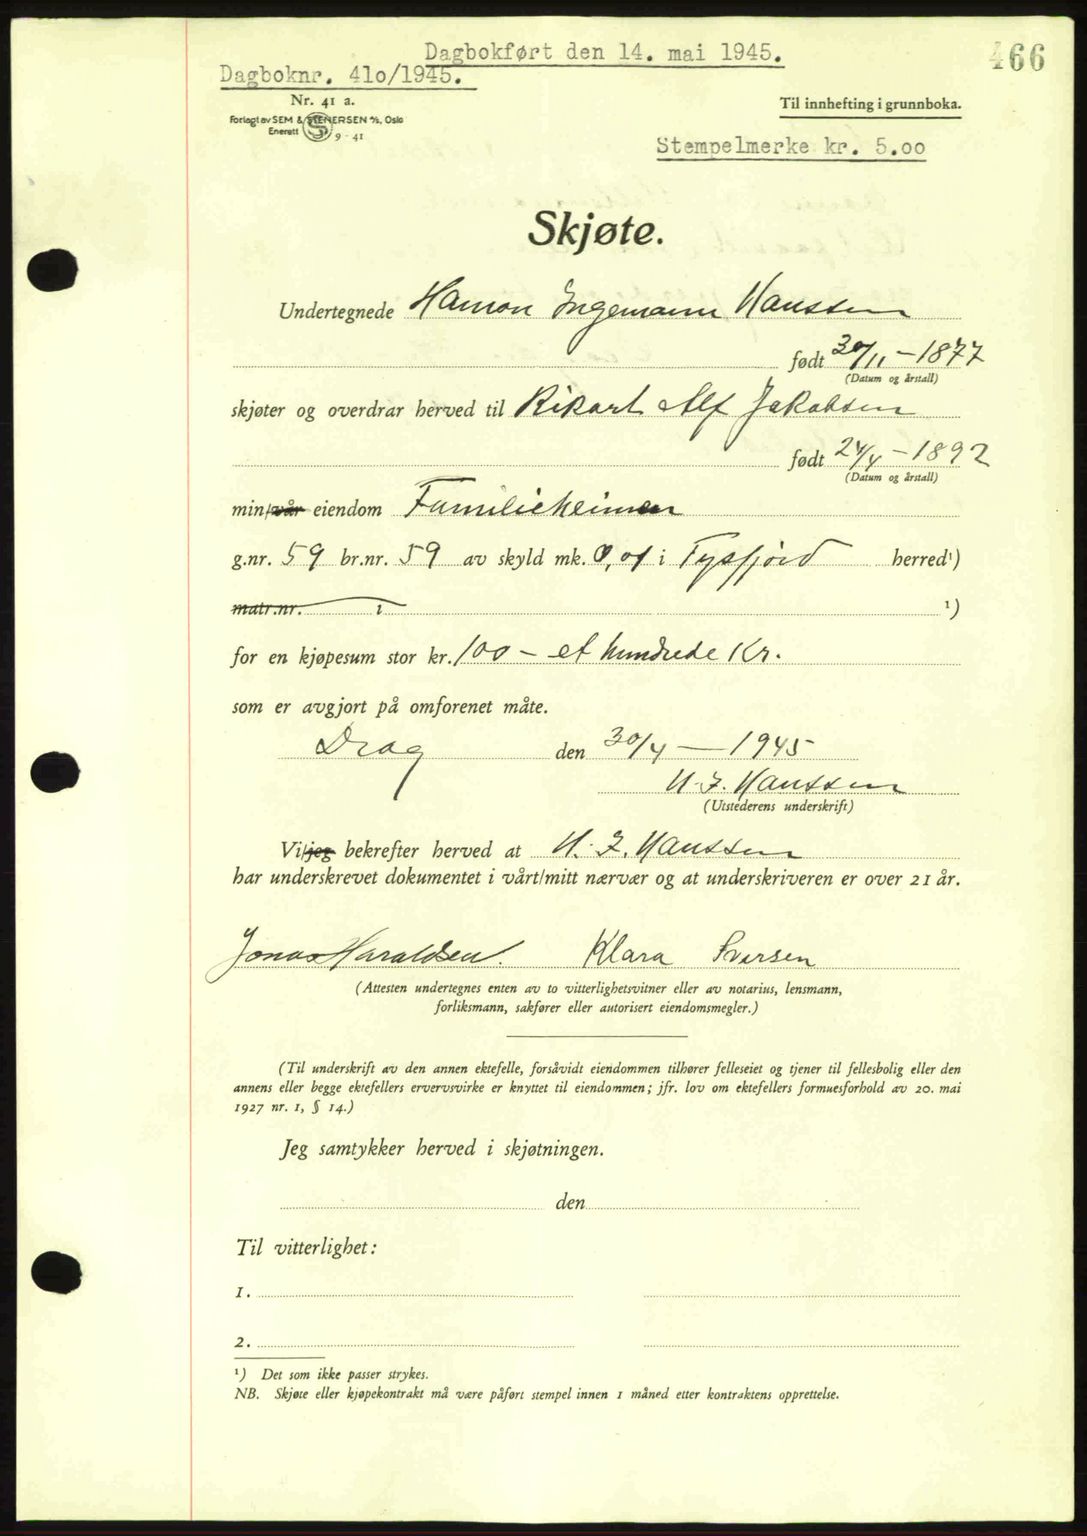 466
Dagbokført den 14. mai 1945.
Dagboknr. 410/1945.
Nr. 41 a.
Forlagt av SEM & STENERSEN A/S, Oslo
Enerett 9 - 41
Til innhefting i grunnboka.
Stempelmerke kr. 5.00
Skjøte.
Undertegnede Hamon Ingemann Hanssen
født 30/11 - 1877
(Datum og årstall)
skjøter og overdrar herved til Rikart Alf Jakobsen
født 24/4 - 1892
(Datum og årstall)
min/vår eiendom Familieheimen
g.nr. 59 br.nr. 59 av skyld mk. 0,01 i Tysfjord herred¹)
matr.nr. i ¹)
for en kjøpesum stor kr. 100 - et hundrede Kr.
som er avgjort på omforenet måte.
Drag den 30/4 — 1945
H. I. Hanssen
(Utstederens underskrift)
Vi/jeg bekrefter herved at H. I. Hanssen
har underskrevet dokumentet i vårt/mitt nærvær og at underskriveren er over 21 år.
Jonas Haraldsen. Klara Iversen
(Attesten undertegnes enten av to vitterlighetsvitner eller av notarius, lensmann,
forliksmann, sakfører eller autorisert eiendomsmegler.)
(Til underskrift av den annen ektefelle, forsåvidt eiendommen tilhører felleseiet og tjener til fellesbolig eller den
annens eller begge ektefellers ervervsvirke er knyttet til eiendommen; jfr. lov om ektefellers formuesforhold av 20. mai
1927 nr. 1, § 14.)
Jeg samtykker herved i skjøtningen.
den
Til vitterlighet:
1.
2.
¹) Det som ikke passer strykes.
NB. Skjøte eller kjøpekontrakt må være påført stempel innen 1 måned etter kontraktens opprettelse.